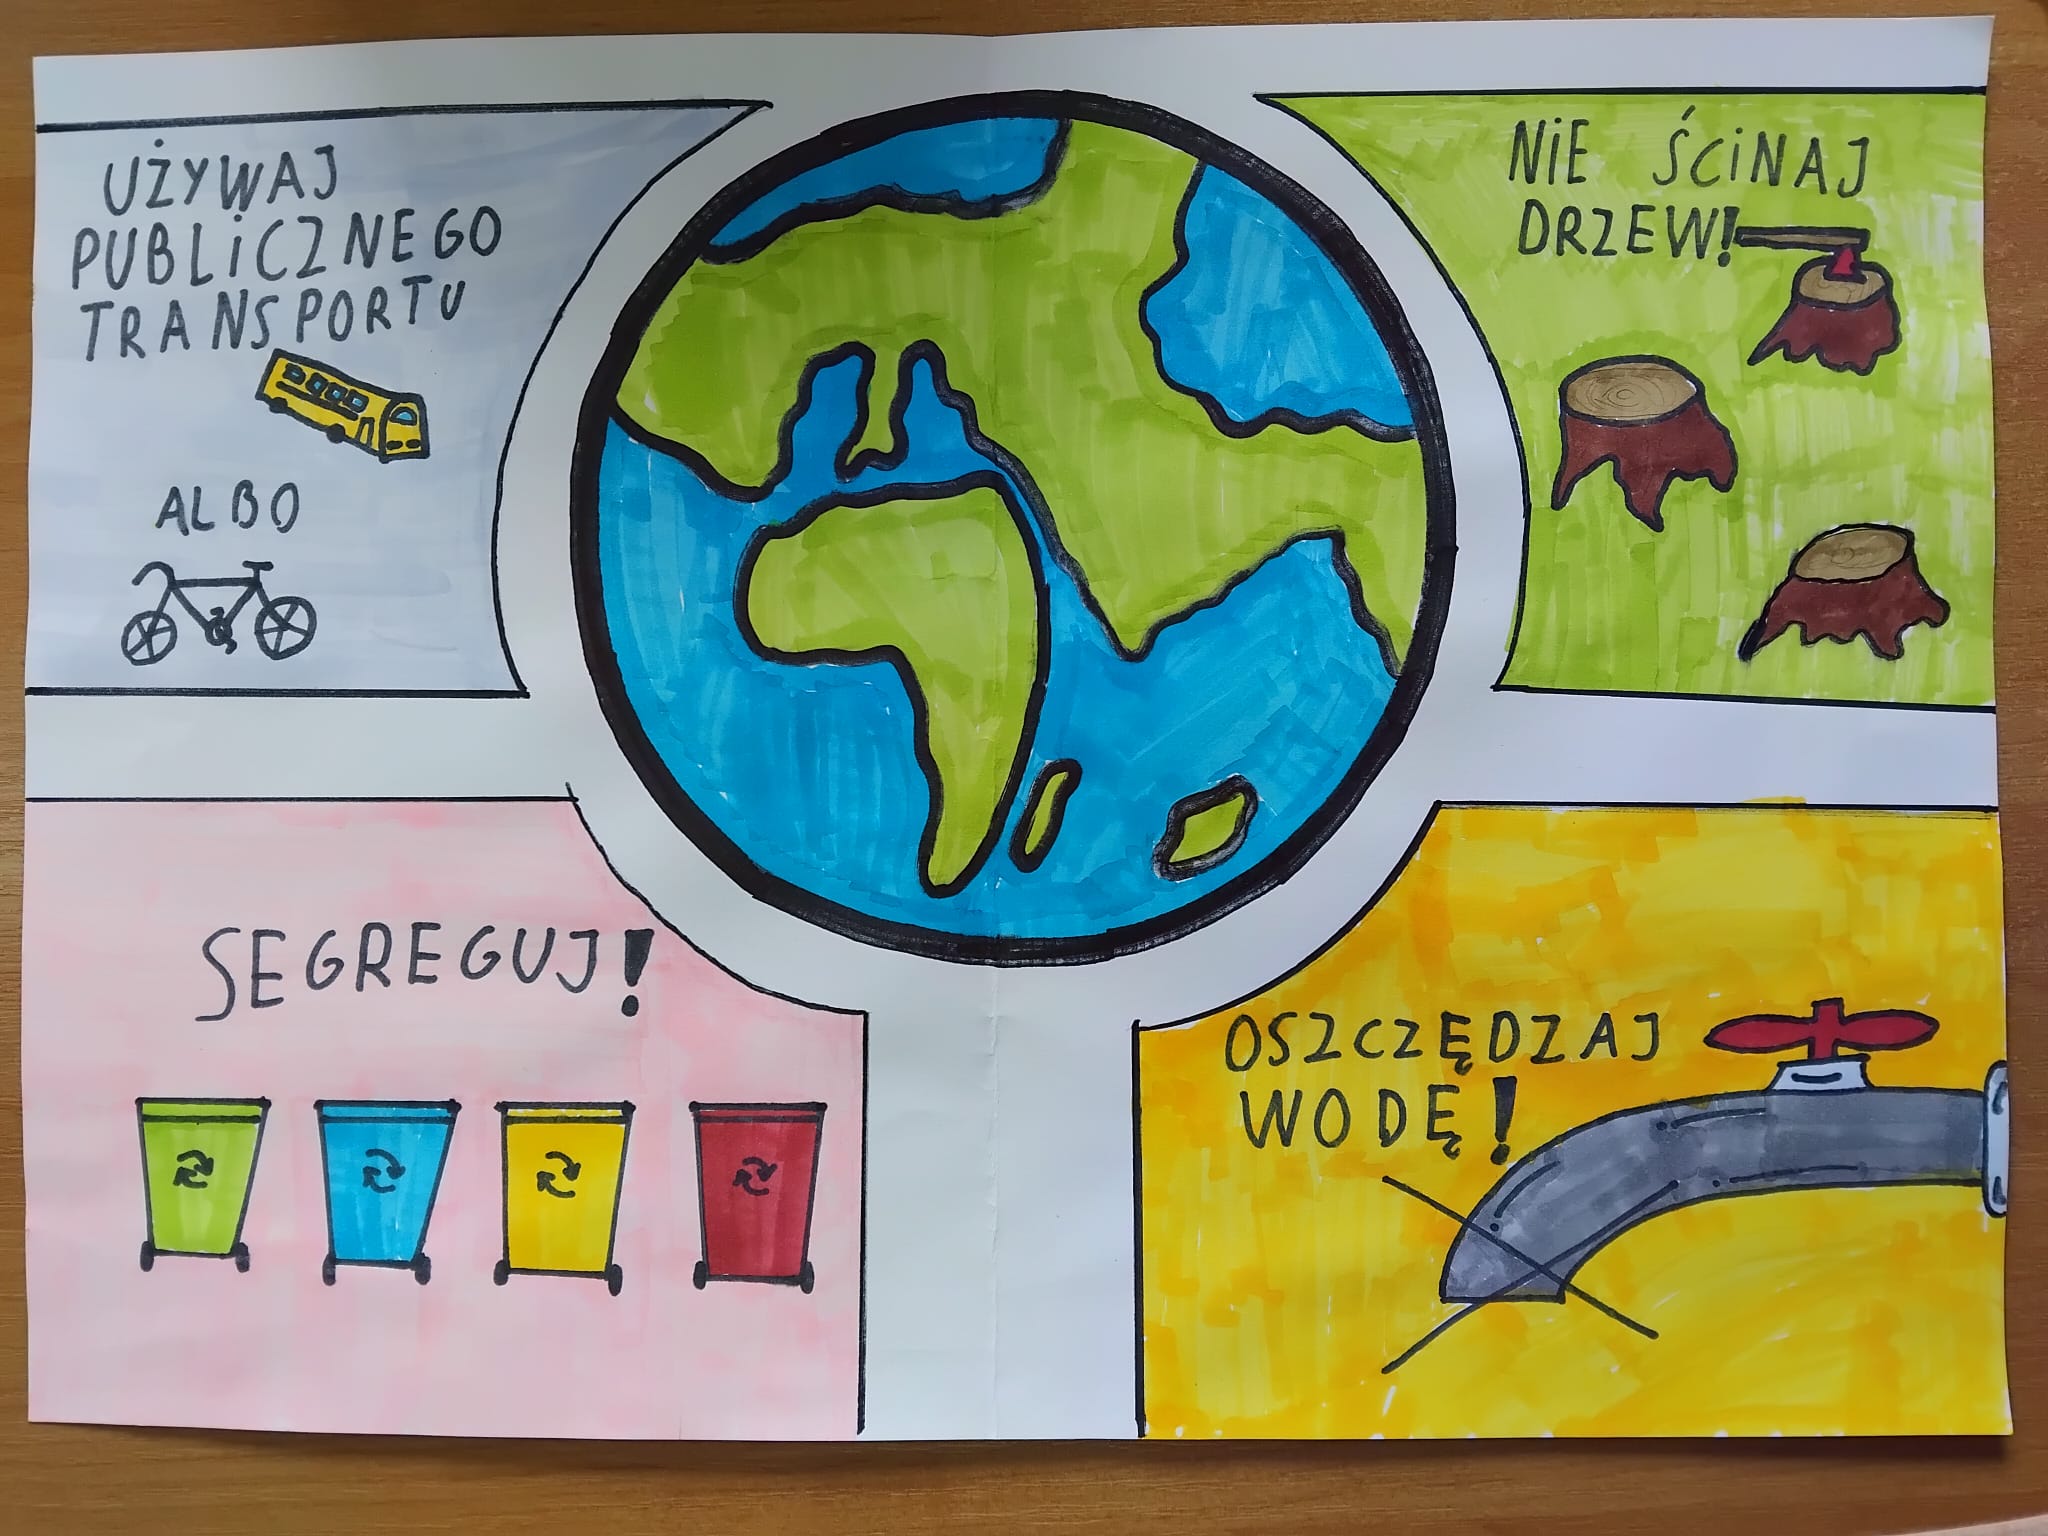 UŻYWAJ
PUBLICZNEGO
TRANSPORTU
ALBO
NIE ŚCINAJ
DRZEW!
SEGREGUJ!
OSZCZĘDZAJ
WODĘ!